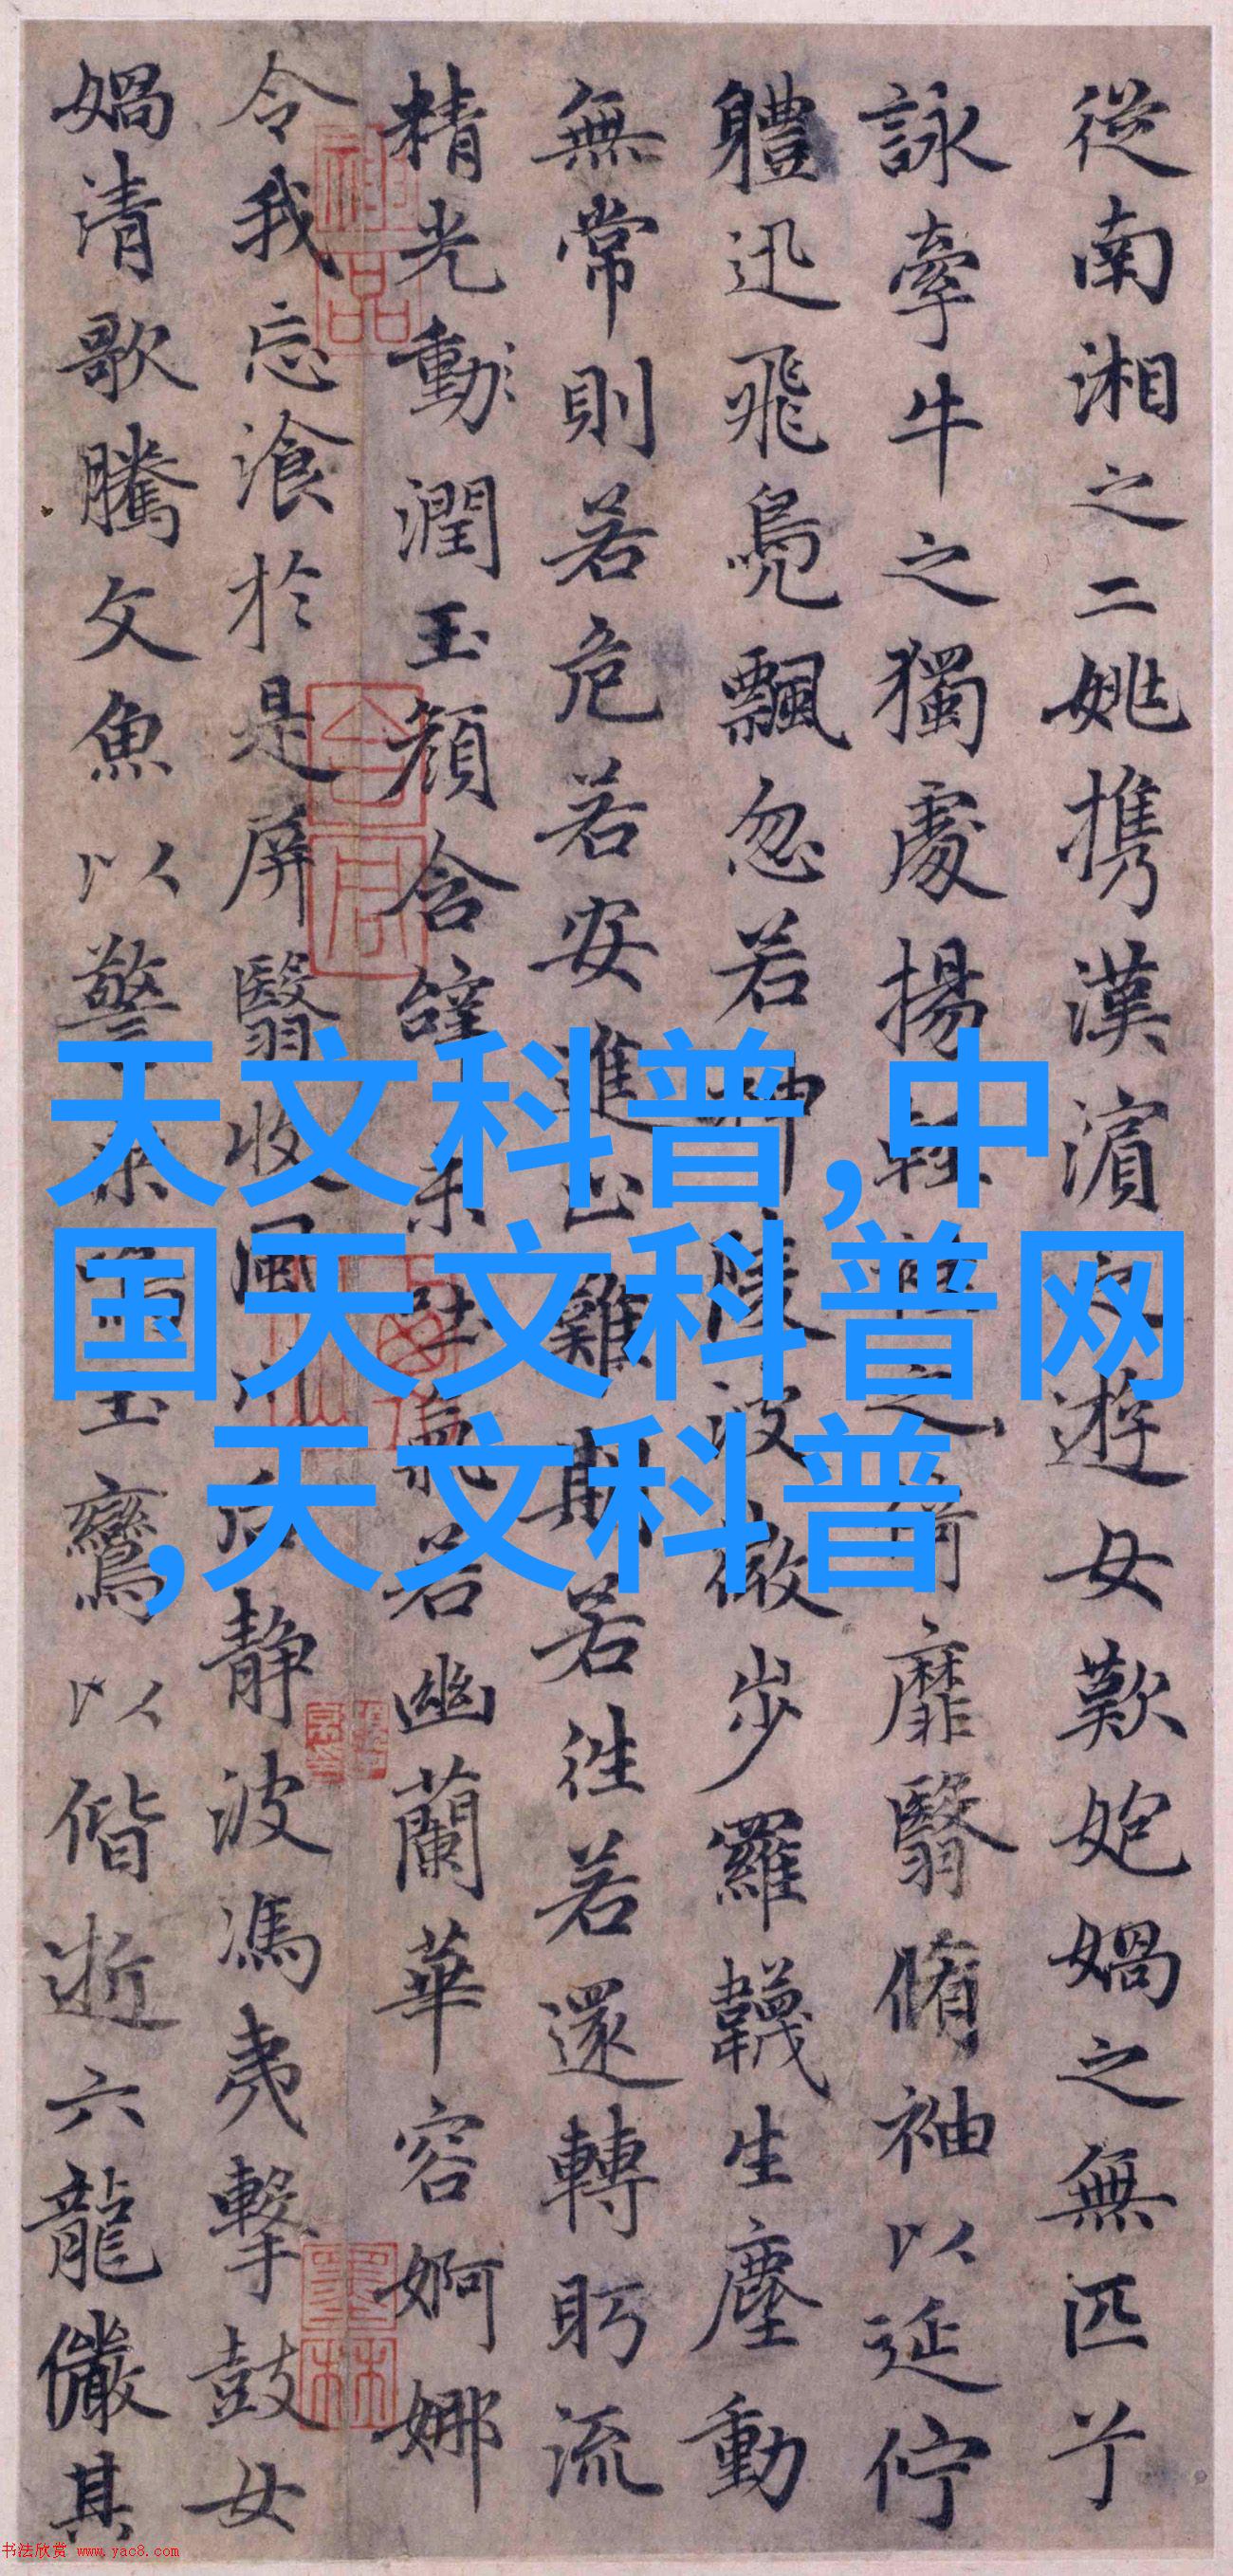 從南湘之二姚攜漢濱之遊女歎匏媧之無匹兮
詠牽牛之獨處揚輕袿之猗靡翳脩袖以延佇
軆迅飛鳧飄忽若神陵波微步羅韈生塵動
無常則若危若安進止難期若往若還轉眄流
精光動潤玉顏含辭未吐氣若幽蘭華容婀娜
令我忘飡於是屏翳收風川后靜波馮夷擊鼓女
媧清歌騰文魚以警乘鳴玉鸞以偕逝六龍儼其
神品
天文科普,中
国天文科普网
,天文科普
书法欣赏 www.yac8.com